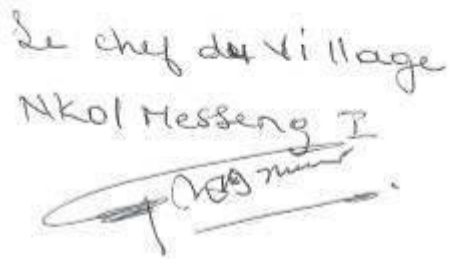 Le chef du village
Nkol Messeng I